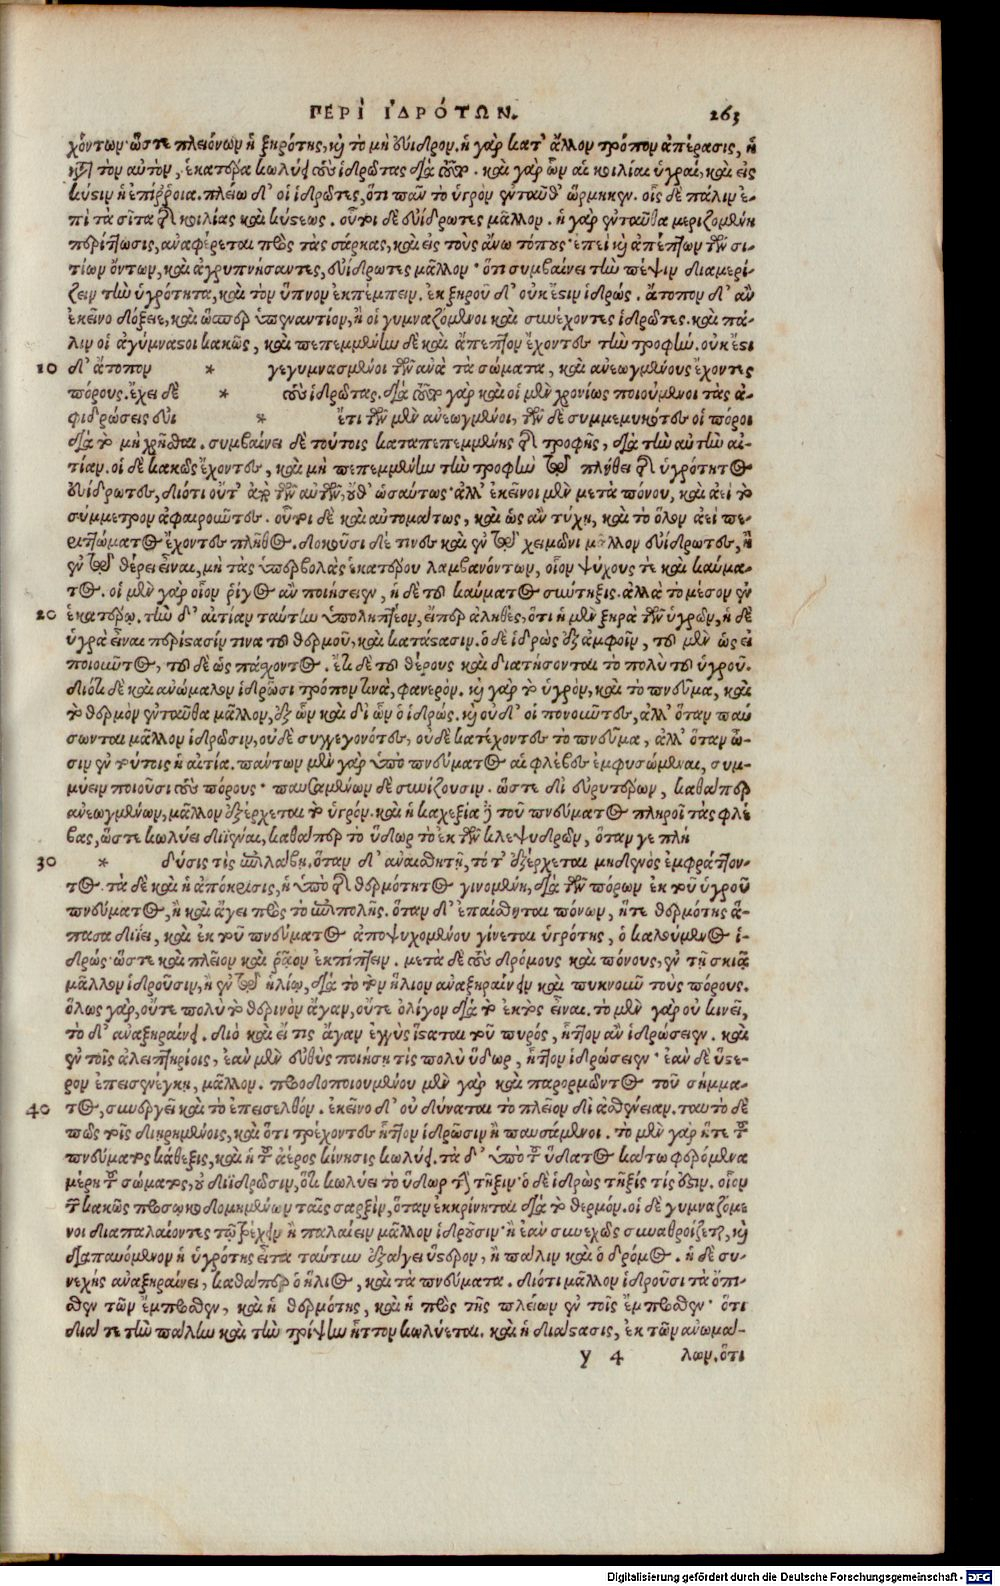 ΠΕΡῚ ἹΔΡΌΤΩΝ. 263
χόντων· ὥστε πλειόνων ἡ ξηρότης, καὶ τὸ μὴ εὐίδρον. ἡ γὰρ κατ' ἄλλον τρόπον ἀπέρασις, ἢ
κατὰ τὸν αὐτὸν, ἑκατέρα κωλύει τοὺς ἱδρῶτας διὰ τοῦτο. καὶ γὰρ ὧν αἱ κοιλίαι ὑγραί, καὶ εἰς
κύστιν ἡ ἐπίρροια. πλείω δ' οἱ ἱδρῶτες, ὅτι πᾶν τὸ ὑγρὸν ἐνταῦθ' ὥρμηκεν. οἷς δὲ πάλιν ἐ-
πὶ τὰ σῖτα τῆς κοιλίας καὶ κύσεως. οὗτοι δὲ εὐίδρωτες μᾶλλον. ἡ γὰρ ἐνταῦθα μεριζομένη
περίττωσις, ἀναφέρεται πρὸς τὰς σάρκας, καὶ εἰς τοὺς ἄνω τόπους· ἐπεὶ καὶ ἀπέπτων τῶν σι-
τίων ὄντων, καὶ ἀγρυπνήσαντες, εὐίδρωτες μᾶλλον· ὅτι συμβαίνει τὴν πέψιν διαμερί-
ζειν τὴν ὑγρότητα, καὶ τὸν ὕπνον ἐκπέμπειν. ἐκ ξηροῦ δ' οὐκ ἔστιν ἱδρώς. ἄτοπον δ' ἂν
ἐκεῖνο δόξειε, καὶ ὥσπερ ὑπεναντίον, ἢ οἱ γυμναζόμενοι καὶ συνέχοντες ἱδρῶτες. καὶ πά-
λιν οἱ ἀγύμναστοι κακῶς, καὶ πεπεμμένην δὲ καὶ ἄπεπτον ἔχοντες τὴν τροφήν. οὐκ ἔστι
10 δ' ἄτοπον * γεγυμνασμένοι τῶν ἀνὰ τὰ σώματα, καὶ ἀνεωγμένους ἔχοντες
πόρους. ἔχει δὲ * τοὺς ἱδρῶτας. διὰ τοῦτο γὰρ καὶ οἱ μὲν χρονίως ποιούμενοι τὰς ἀ-
φιδρώσεις εὐι * ἔτι τῶν μὲν ἀνεωγμένοι, τῶν δὲ συμμεμυκότες οἱ πόροι
διὰ τὸ μὴ χρῆσθαι. συμβαίνει δὲ τούτοις καταπεπεμμένης τῆς τροφῆς, διὰ τὴν αὐτὴν αἰ-
τίαν. οἱ δὲ κακῶς ἔχοντες, καὶ μὴ πεπεμμένην τὴν τροφὴν τῷ πλήθει τῆς ὑγρότητος
εὐίδρωτες, διότι οὔτ' ἀπὸ τῶν αὐτῶν, οὔθ' ὡσαύτως· ἀλλ' ἐκεῖνοι μὲν μετὰ πόνου, καὶ ἀεὶ τὸ
σύμμετρον ἀφαιροῦντες. οὗτοι δὲ καὶ αὐτομάτως, καὶ ὡς ἂν τύχῃ, καὶ τὸ ὅλον ἀεὶ πε-
ριττώματος ἔχοντες πλῆθος. δοκοῦσι δέ τινες καὶ ἐν τῷ χειμῶνι μᾶλλον εὐίδρωτες, ἢ
ἐν τῷ θέρει εἶναι, μὴ τὰς ὑπερβολὰς ἑκατέρου λαμβανόντων, οἷον ψύχους τε καὶ καύμα-
τος. οἱ μὲν γὰρ οἷον ῥῖγος ἂν ποιήσειεν, ἡ δὲ τοῦ καύματος σύντηξις. ἀλλὰ τὸ μέσον ἐν
20 ἑκατέρῳ. τὴν δ' αἰτίαν ταύτην ὑποληπτέον, εἴπερ ἀληθὲς, ὅτι ἡ μὲν ξηρὰ τῶν ὑγρῶν, ἡ δὲ
ὑγρὰ εἶναι περίστασίν τινα τοῦ θερμοῦ, καὶ κατάστασιν. ὁ δὲ ἱδρὼς ἐξ ἀμφοῖν, τοῦ μὲν ὡς εἰ
ποιοῦντος, τοῦ δὲ ὡς πάσχοντος. ἔτι δὲ τοῦ θέρους καὶ διατήσονται τὸ πολὺ τοῦ ὑγροῦ.
διότι δὲ καὶ ἀνώμαλον ἱδρῶσι τρόπον τινὰ, φανερόν. καὶ γὰρ τὸ ὑγρὸν, καὶ τὸ πνεῦμα, καὶ
τὸ θερμὸν ἐνταῦθα μᾶλλον, ἐξ ὧν καὶ δι' ὧν ὁ ἱδρώς. καὶ οὐδ' οἱ πονοῦντες, ἀλλ' ὅταν παύ
σωνται μᾶλλον ἱδρῶσιν, οὐδὲ συγγεγονότες, οὐδὲ κατέχοντες τὸ πνεῦμα, ἀλλ' ὅταν ὦ-
σιν ἐν τούτοις ἡ αἰτία. πάντων μὲν γὰρ ὑπὸ πνεύματος αἱ φλέβες ἐμφυσώμεναι, συμ-
μύειν ποιοῦσι τοὺς πόρους· παυσαμένων δὲ συνίζουσιν. ὥστε δι' εὐρυτέρων, καθάπερ
ἀνεωγμένων, μᾶλλον ἐξέρχεται τὸ ὑγρόν. καὶ ἡ καχεξία τοῦ πνεύματος πληροῖ τὰς φλέ
βας, ὥστε κωλύει διϊέναι, καθάπερ τὸ ὕδωρ τὸ ἐκ τῶν κλεψυδρῶν, ὅταν γε πλή
30 * δύσις τις ἐπιλάβῃ. ὅταν δ' ἀναιαθητῇ, τότ' ἐξέρχεται μηδενὸς ἐμφράττον-
τος. τὰ δὲ καὶ ἡ ἀπόκρισις, ἡ ὑπὸ τῆς θερμότητος γινομένη, διὰ τῶν πόρων ἐκ τοῦ ὑγροῦ
πνεύματος, ἢ καὶ ἄγει πρὸς τὸ ἐπιπολῆς. ὅταν δ' ἐπαίσθηται πόνων, ἥτε θερμότης ἅ-
πασα διΐει, καὶ ἐκ τοῦ πνεύματος ἀποψυχομένου γίνεται ὑγρότης, ὁ καλούμενος ἱ-
δρώς· ὥστε καὶ πλεῖον καὶ ῥᾷον ἐκπίπτειν. μετὰ δὲ τοὺς δρόμους καὶ πόνους, ἐν τῇ σκιᾷ
μᾶλλον ἱδροῦσιν, ἢ ἐν τῷ ἡλίῳ, διὰ τὸ τὸν ἥλιον ἀναξηραίνειν καὶ πυκνοῦν τοὺς πόρους.
ὅλως γὰρ, οὔτε πολὺ τὸ θερινὸν ἄγαν, οὔτε ὀλίγον διὰ τὸ ἐκτὸς εἶναι. τὸ μὲν γὰρ οὐ κινεῖ,
τὸ δ' ἀναξηραίνει. διὸ καὶ εἴ τις ἄγαν ἐγγὺς ἵσταται τοῦ πυρός, ἧττον ἂν ἱδρώσειεν. καὶ
ἐν τοῖς ἀλειπτηρίοις, ἐὰν μὲν εὐθὺς ποιήσῃ τις πολὺ ὕδωρ, ἧττον ἱδρώσειεν· ἐὰν δὲ ὕστε-
ρον ἐπεισενέγκῃ, μᾶλλον. προοδοποιουμένου μὲν γὰρ καὶ παρορμῶντος τοῦ σήμμα-
40 τος, συνεργεῖ καὶ τὸ ἐπεισελθόν. ἐκεῖνο δ' οὐ δύναται τὸ πλεῖον δι' ἀσθένειαν. ταὐτὸ δέ
πως τοῖς διῃρημένοις, καὶ ὅτι τρέχοντες ἧττον ἱδρῶσιν ἢ παυσάμενοι. τὸ μὲν γὰρ ἥτε τοῦ
πνεύματος κάθεξις, καὶ ἡ τοῦ ἀέρος κίνησις κωλύει. τὰ δ' ὑπὸ τοῦ ὕδατος κάτω φερόμενα
μέρη τοῦ σώματος, οὐ διϊδρῶσιν, ὅτι κωλύει τὸ ὕδωρ τὴν τῆξιν· ὁ δὲ ἱδρὼς τῆξίς τίς ἐστιν. οἷον
τῶν κακῶς προσῳκοδομημένων ταῖς σαρξὶν, ὅταν ἐκκρίνηται διὰ τὸ θερμόν. οἱ δὲ γυμναζόμε
νοι διαπαλαίοντες τῷ τρέχειν ἢ παλαίειν μᾶλλον ἱδροῦσιν· ἢ ἐὰν συνεχῶς συναθροίζεται, καὶ
διαπαυόμενον ἡ ὑγρότης εἶτα ταύτην ἐξάγει ὕστερον, ἢ πάλιν καὶ ὁ δρόμος. ἡ δὲ συ-
νεχὴς ἀναξηραίνει, καθάπερ ὁ ἥλιος, καὶ τὰ πνεύματα. διότι μᾶλλον ἱδροῦσι τὰ ὄπι-
σθεν τῶν ἔμπροσθεν, καὶ ἡ θερμότης, καὶ ἡ πρὸς τῆς πλείων ἐν τοῖς ἔμπροσθεν· ὅτι
διά τε τὴν πάλην καὶ τὴν τρίψιν ἧττον κωλύεται. καὶ ἡ διάστασις, ἐκ τῶν ἀνωμά-
y 4 λων. ὅτι
Digitalisierung gefördert durch die Deutsche Forschungsgemeinschaft - DFG